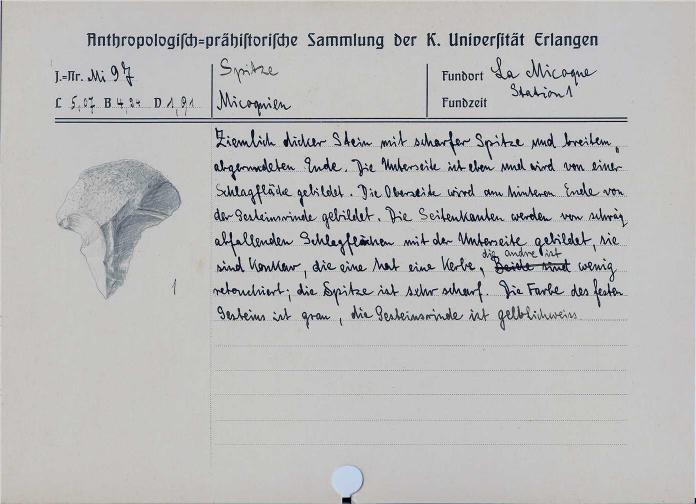 Anthropologisch-prähistorische Sammlung der K. Universität Erlangen
J.-Nr. Mi 97
Spitze
Fundort La Micoque
Station 1
L 5,07 B 4,24 D 1,91
Micoquien
Fundzeit
Ziemlich dicker Stein mit scharfer Spitze und breitem,
abgerundeten Ende. Die Unterseite ist eben und wird von einer
Schlagfläche gebildet. Die Oberseite wird am hinteren Ende von
der Gesteinsrinde gebildet. Die Seitenkanten werden von schräg
abfallenden Schlagflächen mit der Unterseite gebildet, sie
die andre ist
sind konkav, die eine hat eine Kerbe, Beide sind wenig
retouchiert; die Spitze ist sehr scharf. Die Farbe des festen
Gesteins ist grau, die Gesteinsrinde ist gelblichweiss
1